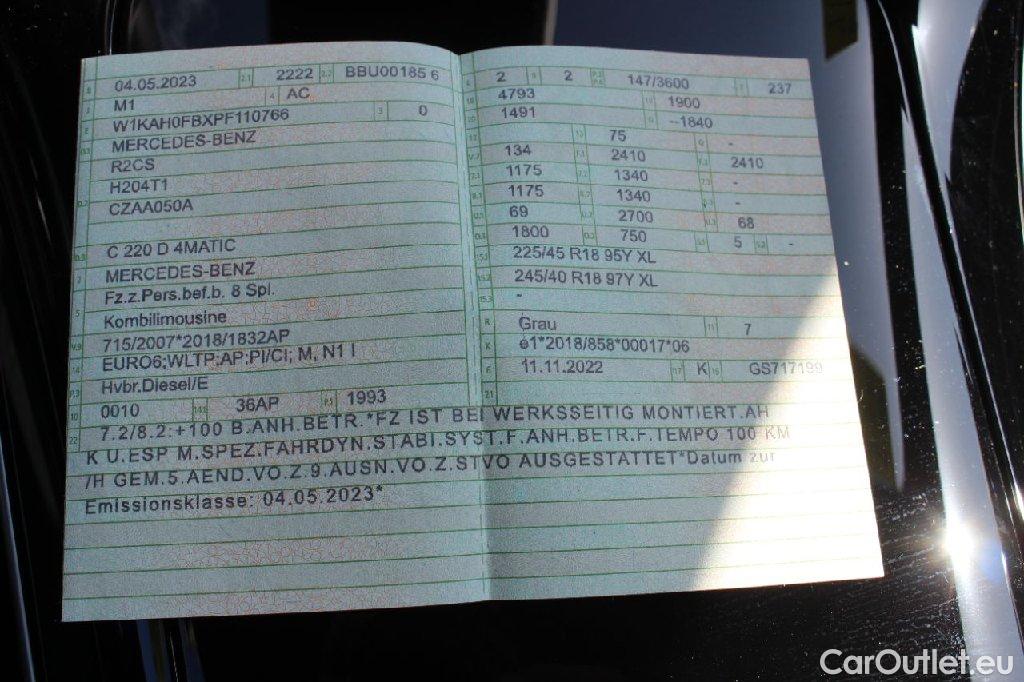 04.05.2023 2.1 2222 2.2 BBU00185 6
M1 4 AC
W1KAH0FBXPF110766 3 0
MERCEDES-BENZ
R2CS
H204T1
CZAA050A
C 220 D 4MATIC
MERCEDES-BENZ
Fz.z.Pers.bef.b. 8 Spl.
Kombilimousine
715/2007*2018/1832AP
EURO6;WLTP;AP;PI/CI; M, N1 I
Hybr.Diesel/E
0010 14.1 36AP P.1 1993
2 9 2 147/3600 237
4793 1900
1491 --1840
75 -
134 2410 2410
1175 1340 -
1175 1340 -
69 2700 68
1800 750 5 -
225/45 R18 95Y XL
245/40 R18 97Y XL
-
Grau 11 7
e1*2018/858*00017*06
11.11.2022 17 K 16 GS717199
7.2/8.2:+100 B.ANH.BETR.*FZ IST BEI WERKSSEITIG MONTIERT.AH
K U.ESP M.SPEZ.FAHRDYN.STABI.SYST.F.ANH.BETR.F.TEMPO 100 KM
/H GEM.5.AEND.VO.Z.9.AUSN.VO.Z.STVO AUSGESTATTET*Datum zur
Emissionsklasse: 04.05.2023*
CarOutlet.eu